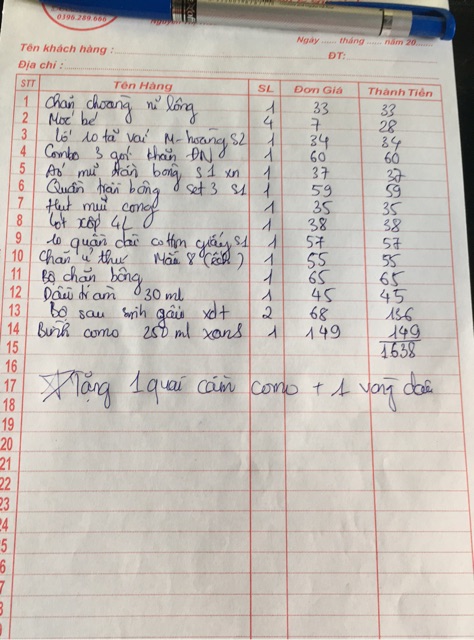 0396.289.666
Ngày ...... tháng ...... năm 20......
Tên khách hàng :
ĐT:
Địa chỉ :
STT Tên Hàng SL Đơn Giá Thành Tiền
1 Chăn choàng nỉ lông 1 33 33
2 Móc bé 4 7 28
3 Lót 10 tã vải M-hoàng S2 1 34 34
4 Combo 3 gói khăn ĐN 1 60 60
5 Áo mũ trần bông S1 xn 1 37 37
6 Quần trần bông set 3 S1 1 59 59
7 Hút mũi cong 1 35 35
8 Lót xốp 4L 1 38 38
9 10 quần dài cotton giấy S1 1 57 57
10 Chăn ủ thư Mẫu 8 (ếch) 1 55 55
11 Bộ chăn bông 1 65 65
12 Dầu tràm 30 ml 1 45 45
13 Bộ sau sinh gấu xđt 2 68 136
14 Bình como 250 ml xanh 1 149 149
15 1638
16
17 Tặng 1 quai cầm como + 1 vòng dâu
18
19
20
21
22
23
24
5
6
7
8